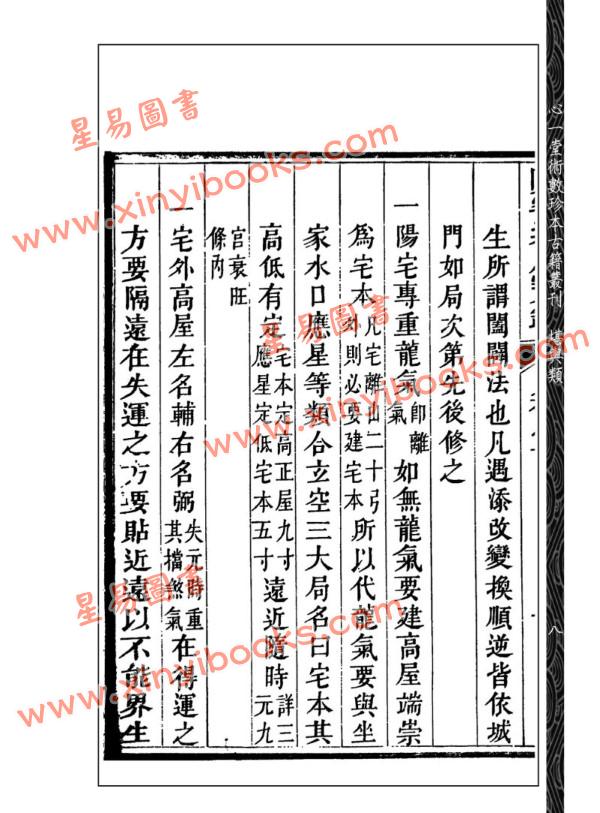 心一堂術數珍本古籍叢刊
類
八
生所謂闔闢法也凡遇添改變換順逆皆依城
門如局次第先後修之
一陽宅專重龍氣即離氣如無龍氣要建高屋端崇
爲宅本凡宅離山二十弓外則必要建宅本所以代龍氣要與坐
家水口應星等類合玄空三大局名曰宅本其
高低有定宅本定高正屋九寸應星定低宅本五寸遠近隨時詳三元九
宮衰旺條內
一宅外高屋左名輔右名弼失元時重其擋煞氣在得運之
方要隔遠在失運之方要貼近遠以不能界生
星易圖書
www.xinyibooks.com
星易圖書
www.xinyibooks.com
星易圖書
www.xinyibooks.com